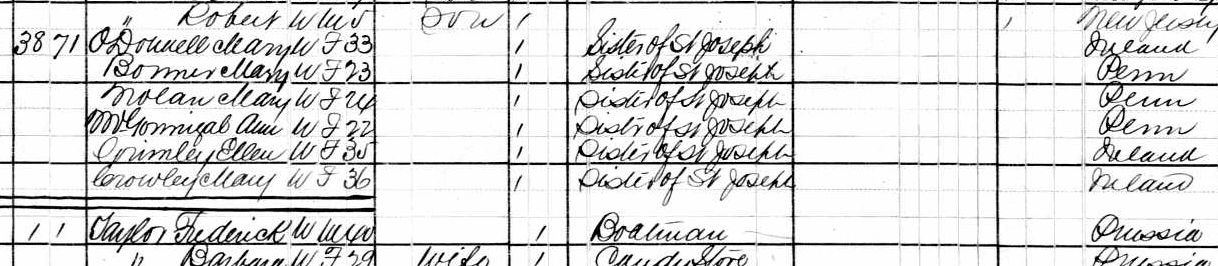 " Robert W M 5 Son 1 1 New Jersey
38 71 O'Donnell Mary W F 33 1 Sister of St Joseph Ireland
Bonner Mary W F 23 1 Sister of St Joseph Penn
Nolan Mary W F 24 1 Sister of St Joseph Penn
McGonnigal Ann W F 22 1 Sister of St Joseph Penn
Grimley Ellen W F 35 1 Sister of St Joseph Ireland
Crowley Mary W F 36 1 Sister of St Joseph Ireland
1 1 Taylor Frederick W M 40 1 Boatman Prussia
" Barbara W F 29 Wife 1 Candy Store Prussia